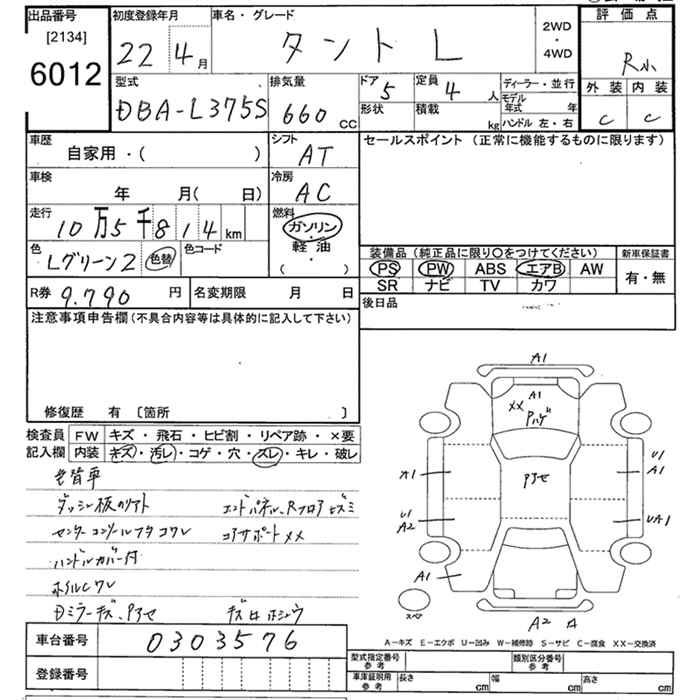 出品番号
[2134]
6012
初度登録年月
22 4月
車名・グレード
タント L
2WD
・
4WD
評価点
R小
外装 内装
C C
型式
DBA-L375S
排気量
660 CC
ドア 5
定員 4 人
形状
積載 kg
ディーラー・並行
モデル年式 年
ハンドル 左・右
車歴
自家用・( )
シフト
AT
車検
年 月( 日)
冷房
AC
走行
10万5千814 km
燃料
ガソリン
軽油
( )
色
Lグリーン2 色替
色コード
R券 9.790 円
名変期限 月 日
セールスポイント (正常に機能するものに限ります)
装備品 (純正品に限り○をつけてください)
PS PW ABS エアB AW
SR ナビ TV カワ
新車保証書
有・無
後日品
注意事項申告欄 (不具合内容等は具体的に記入して下さい)
修復歴 有 [箇所 ]
検査員記入欄
FW キズ・飛石・ヒビ割・リペア跡・×要
内装 キズ・汚レ・コゲ・穴・スレ・キレ・破レ
色替車
ダッシュ板のリアト
センターコンソールフタコワレ
ハンドルカバー付
ホイルCワレ
Dミラーキズ、Pアセ
エンドパネル、Rフロアヒズミ
コアサポートXX
キズ ホシュウ
A1
A1
XX
Pハゲ
Pアセ
A1
U1
A1
U1
A2
UA1
A1
スペア
A2
A-キズ E-エクボ U-凹み W-補修跡 S-サビ C-腐食 XX-交換済
車台番号 0303576
登録番号
型式指定番号
参考
類別区分番号
参考
車庫証明用
参考
長さ cm
幅 cm
高さ cm